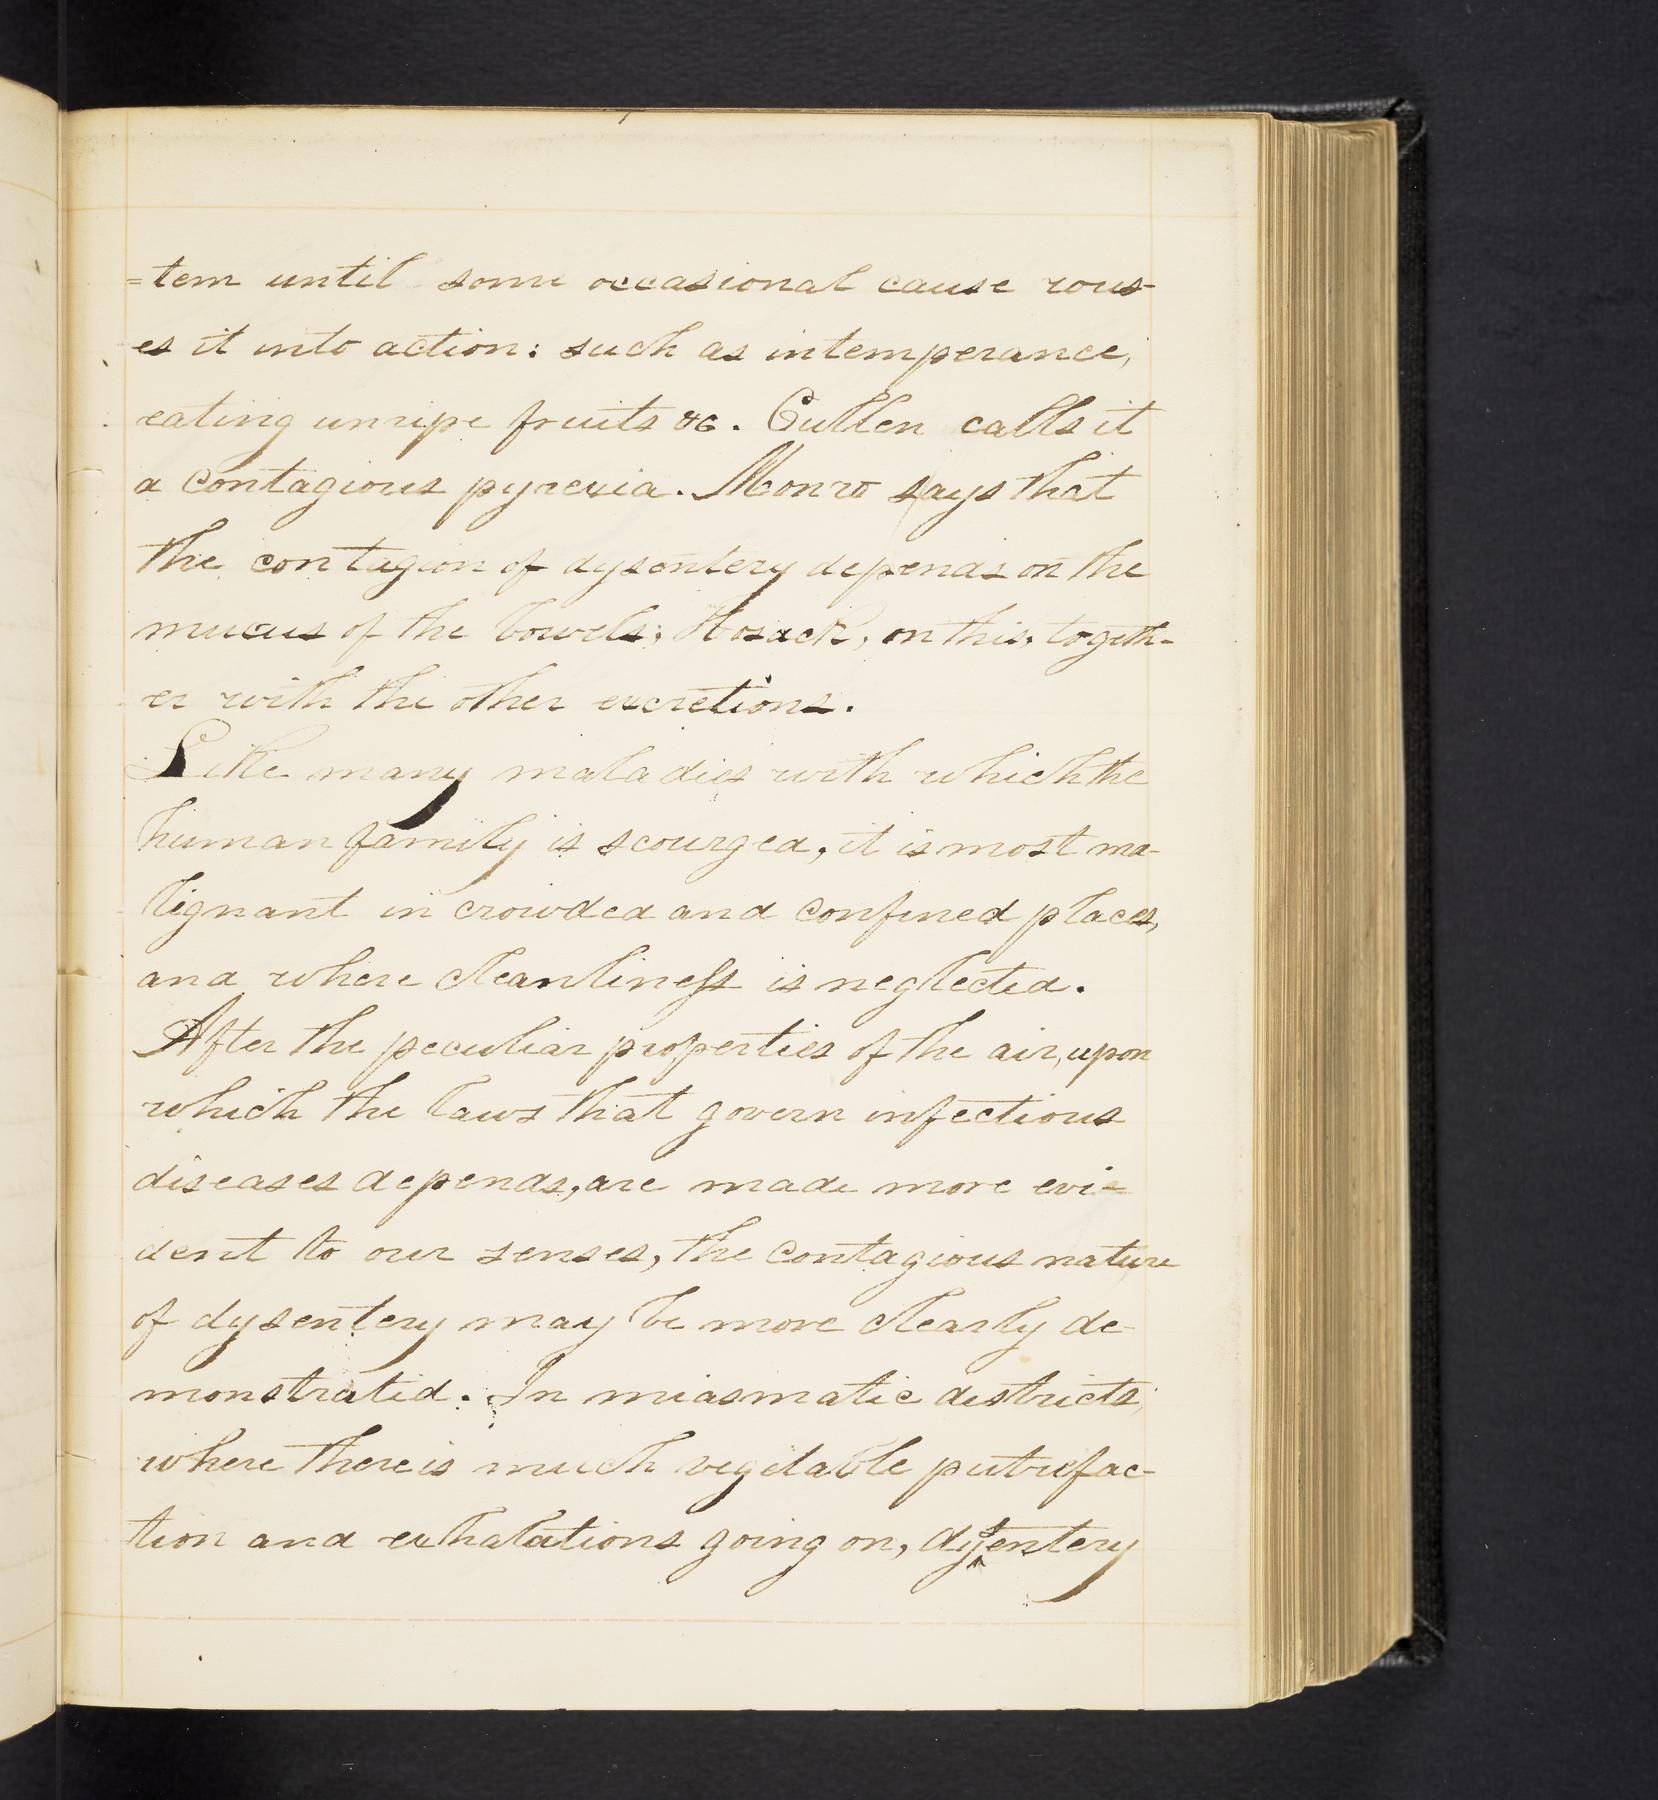 =tem until some occasional cause rous-
es it into action: such as intemperance,
eating unripe fruits &c. Cullen calls it
a contagious pyrexia. Monro says that
the contagion of dysentery depends on the
mucus of the bowels; Hosack, on this, togeth-
er with the other excretions.
Like many maladies with which the
human family is scourged, it is most ma-
lignant in crowded and confined places,
and where cleanliness is neglected.
After the peculiar properties of the air, upon
which the laws that govern infectious
diseases depends, are made more evi-
dent to our senses, the contagious nature
of dysentery may be more clearly de-
monstrated. In miasmatic districts,
where there is much vegetable putrefac-
tion and exhalations going on, dysentery